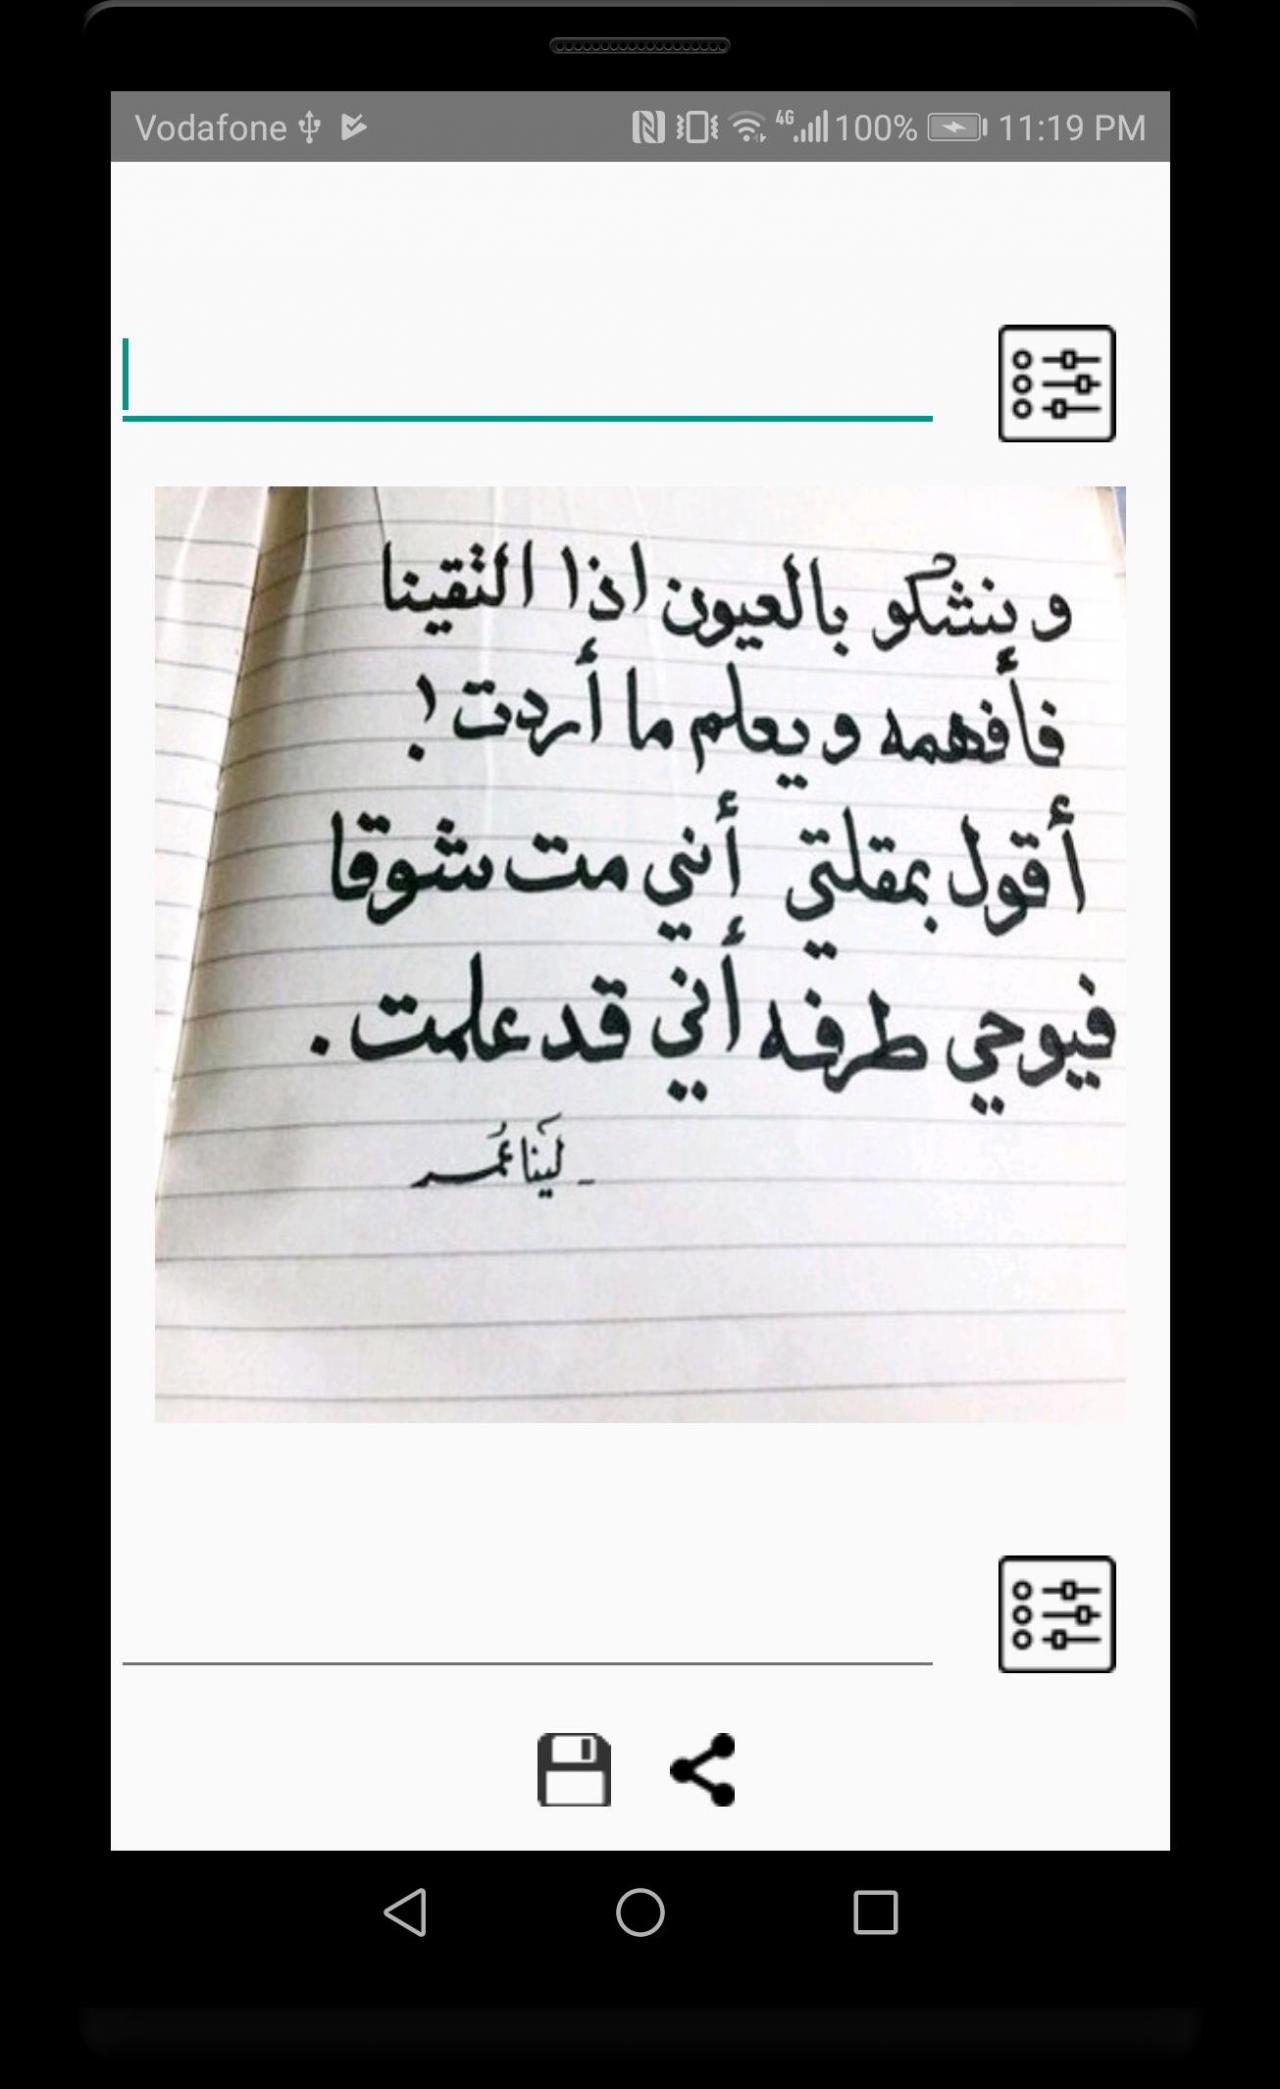 Vodafone 4G 100% 11:19 PM
و ننشكو بالعيون اذا التقينا
فأفهمه و يعلم ما أردت !
أقول بمقلتي أنني مت شوقا
فيوحي طرفه أني قد علمت .
- لَينا عُمر